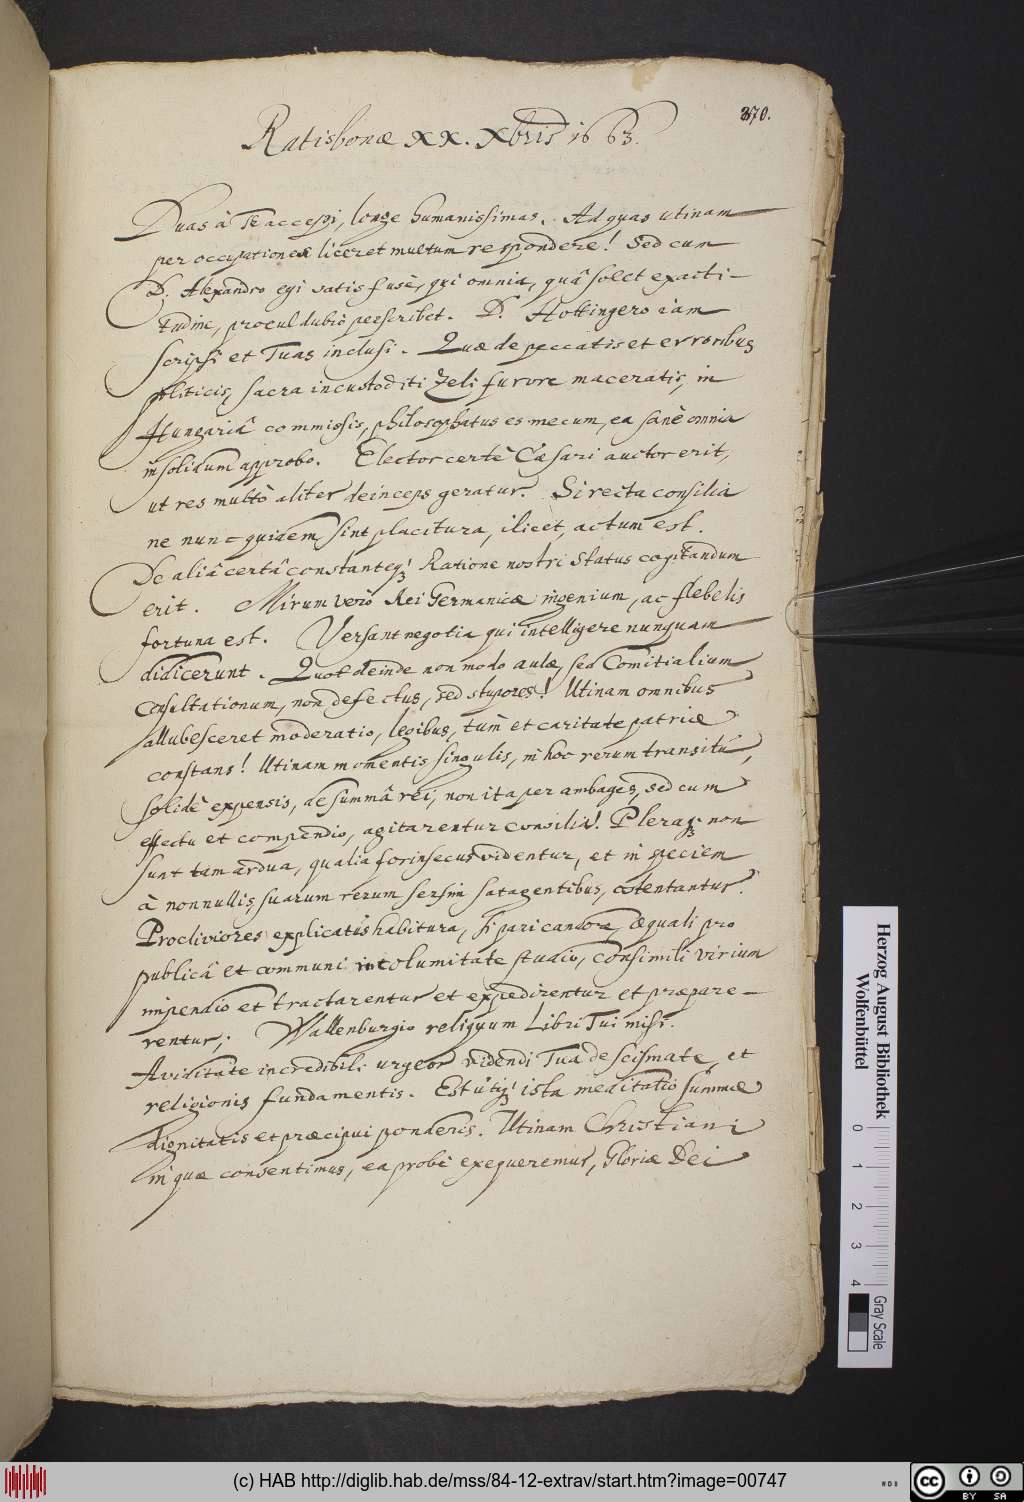 370.
Ratisbonæ XX. Xbris 1663.
Duas à Te accepi, longe humanissimas. Ad quas utinam
per occupationes liceret multum respondere! Sed cum
D. Alexandro egi satis fusè, qui omnia, quâ solet exacti-
tudine, procul dubiò perscribet. D. Hottingero iam
scripsi et Tuas inclusi. Quæ de peccatis et erroribus
politicis, sacra incustoditi Zeli furore maceratis, in
Hungariâ commissis, philosophatus es mecum, ea sanè omnia
in solidum approbo. Elector certè Cæsari auctor erit,
ut res multò aliter deinceps geratur. Si recta consilia
ne nunc quidem sint placitura, ilicet, actum est.
De aliâ certâ constanteq; Ratione nostri Status cogitandum
erit. Mirum verò Rei Germanicæ ingenium, ac flebelis
fortuna est. Versant negotia qui intelligere nunquam
didicerunt. Quot deinde non modo aulæ, sed Comitialium
consultationum, non defectus, sed stupores! Utinam omnibus
allubesceret moderatio, legibus, tum et caritate patriæ
constans! Utinam momentis singulis, in hoc rerum transitu,
solidè expensis, de summâ rei, non ita per ambages, sed cum
effectu et compendio, agitarentur consilia! Pleraq; non
sunt tam ardua, qualia forinsecus videntur, et in speciem
à nonnullis, suarum rerum sersim satagentibus, ostentantur.
Procliviores explicatus habitura, si pari candore, æquali pro
publicâ et communi incolumitate studio, consimili virium
impendio et tractarentur et expedirentur et præpare-
rentur. Wallenburgio reliquum Libri Tui misi.
Aviditate incredibili urgeor videndi Tua de scismate, et
religionis fundamentis. Est utiq; ista meditatio summæ
dignitatis et præcipui ponderis. Utinam Christiani
in quæ consentimus, ea probè exequeremur, Gloriæ Dei
Herzog August Bibliothek
Wolfenbüttel
0 1 2 3 4
Gray Scale
(c) HAB http://diglib.hab.de/mss/84-12-extrav/start.htm?image=00747
HAB
cc BY SA